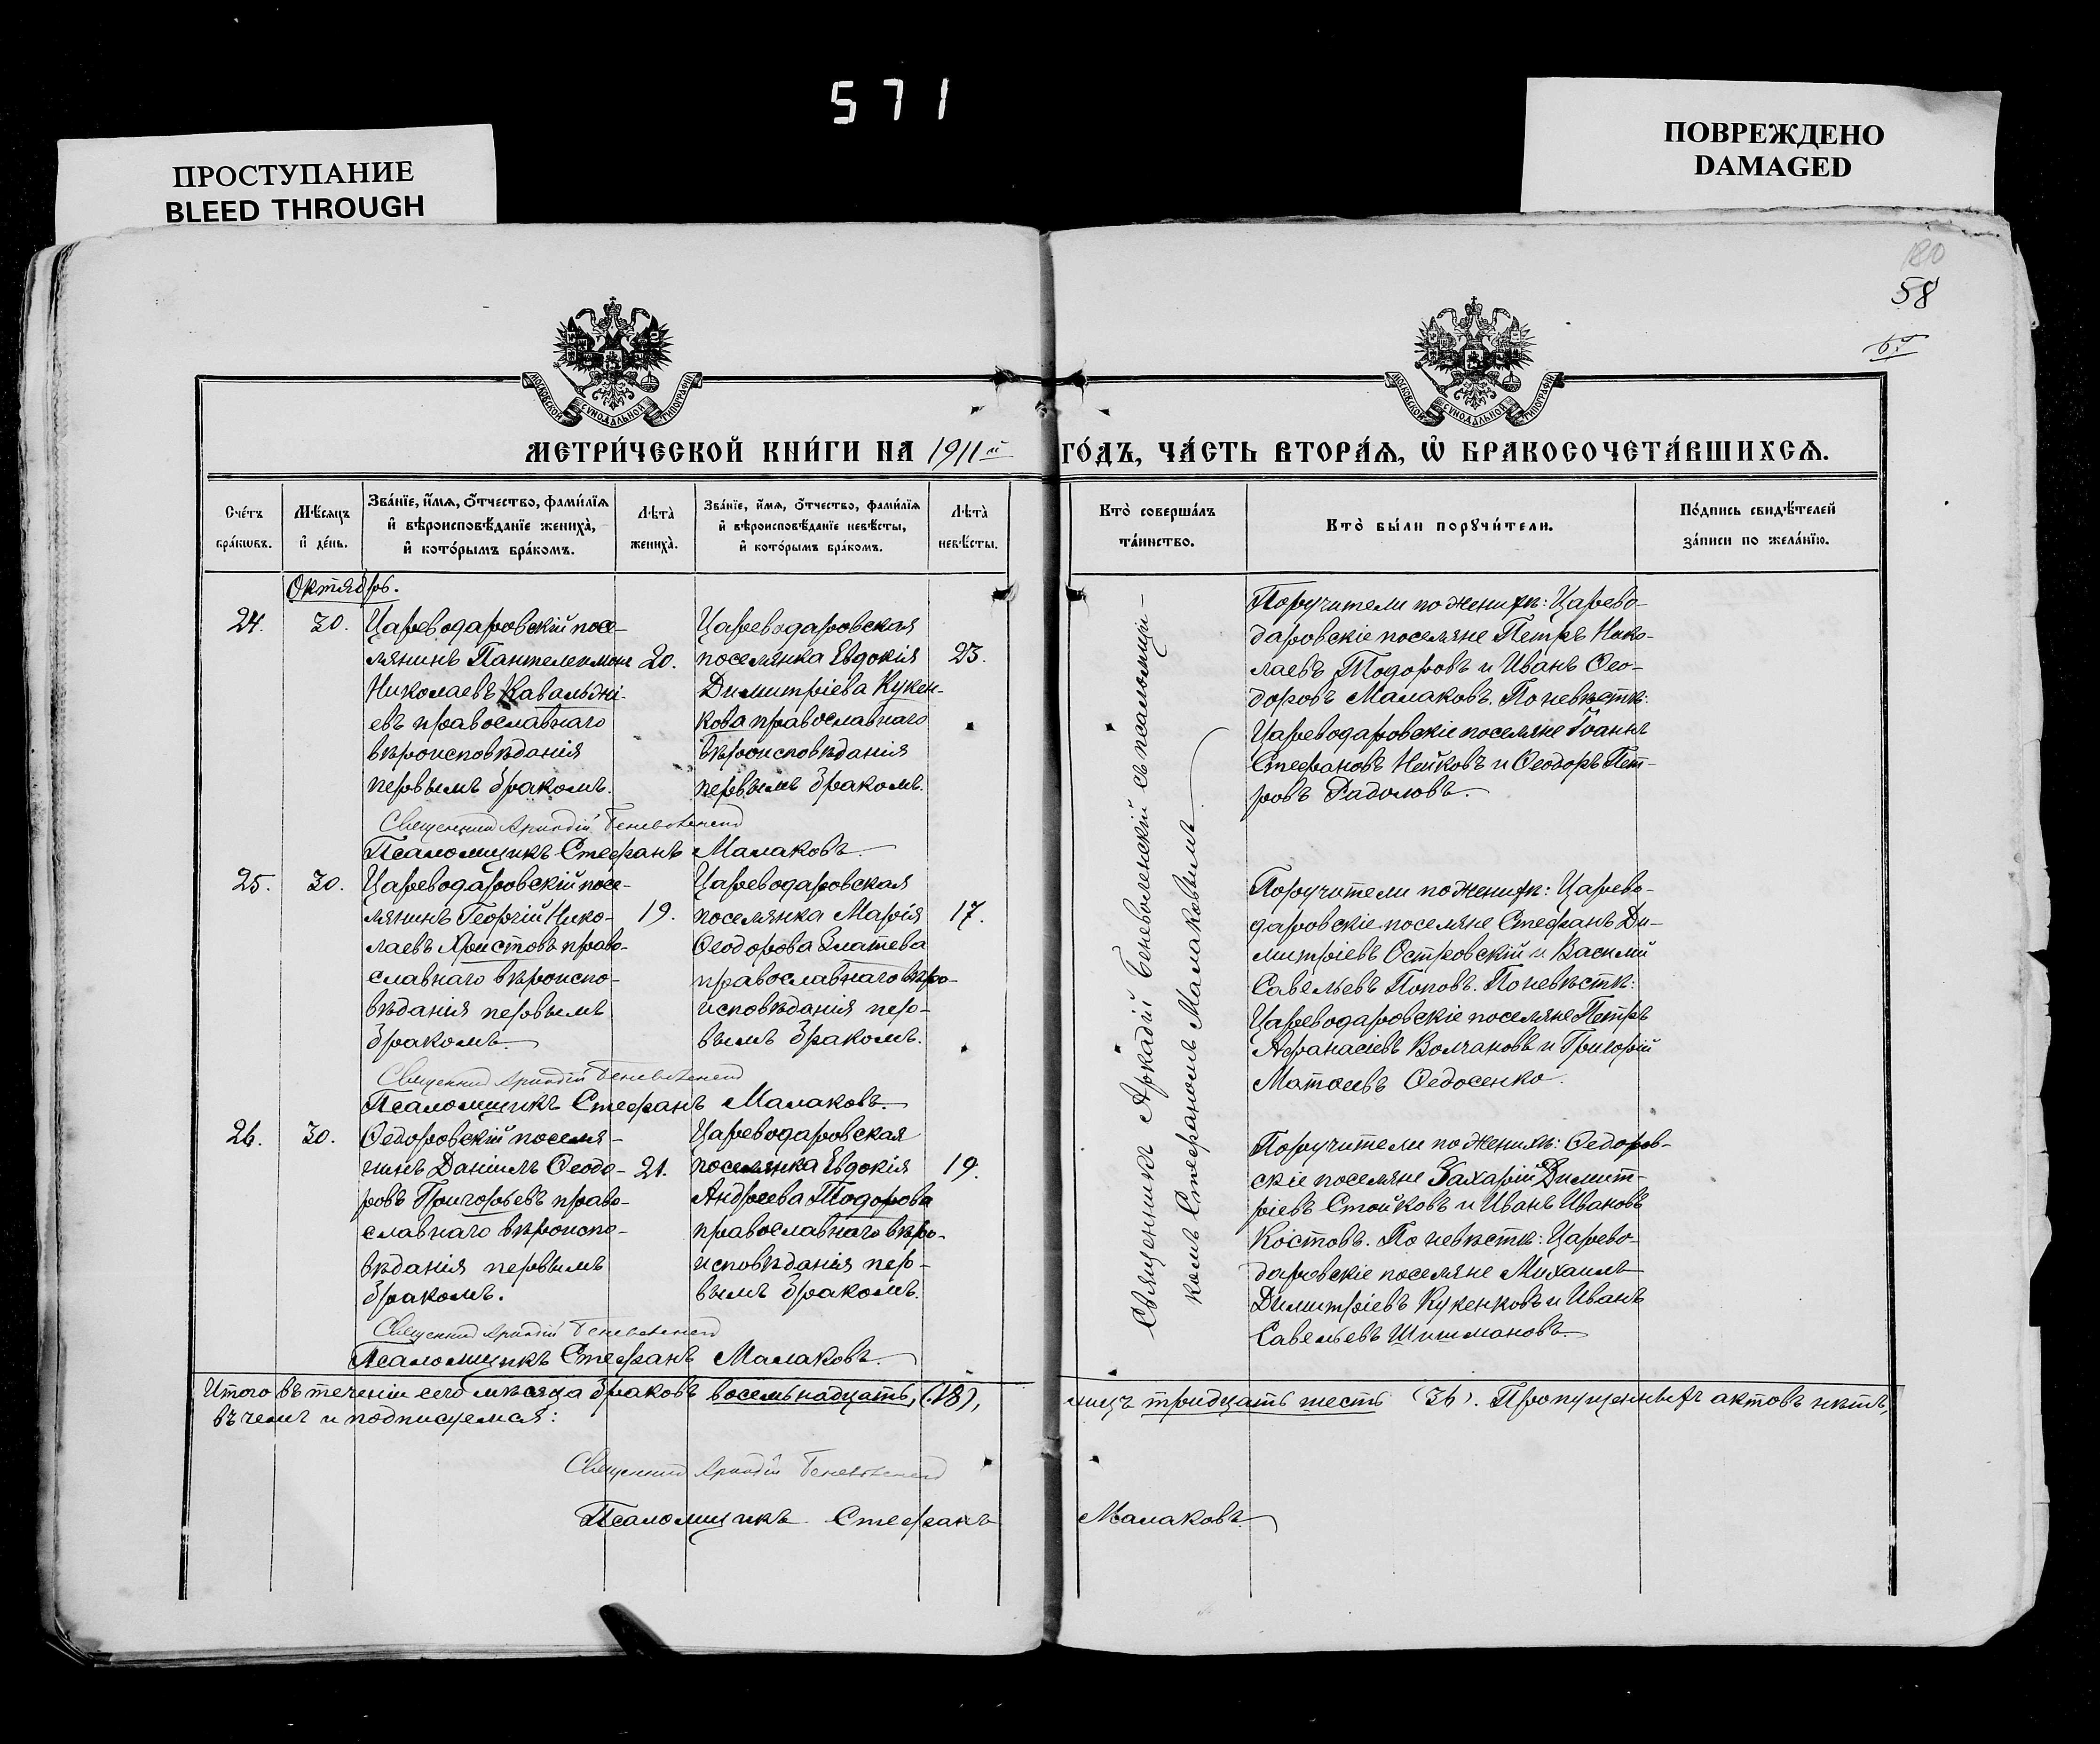 571
ПРОСТУПАНИЕ
BLEED THROUGH
ПОВРЕЖДЕНО
DAMAGED
180
58
МОСКОВСКОЙ СѴНОДАЛЬНОЙ ТИПОГРАФІИ
МОСКОВСКОЙ СѴНОДАЛЬНОЙ ТИПОГРАФІИ
МЕТРИ́ЧЕСКОЙ КНИ́ГИ НА 1911й ГО́ДЪ, ЧА́СТЬ ВТОРА́Ѧ, Ѽ БРАКОСОЧЕТА́ВШИХСѦ.
Сче́тъ
бра́кѡвъ.
Мѣ́сяцъ
и҆ де́нь.
Зва́нїе, и҆́мѧ, ѻ҆́тчество, фами́лїѧ
и҆ вѣроисповѣ́данїе жениха̀,
и҆ кото́рымъ бра́комъ.
Лѣта̀
жениха̀.
Зва́нїе, и҆́мѧ, ѻ҆́тчество, фами́лїѧ
и҆ вѣроисповѣ́данїе невѣ́сты,
и҆ кото́рымъ бра́комъ.
Лѣта̀
невѣ́сты.
Кто̀ соверша́лъ
та́инство.
Кто̀ бы́ли порꙋчи́тели.
По́дпись свидѣ́телей
за́писи по жела́нїю.
Октябрь.
24.
30.
Цареводаровскій посе-
лянинъ Пантелеимонъ
Николаевъ Кавальджі-
евъ православнаго
вѣроисповѣданія
первымъ бракомъ.
20.
Цареводаровская
поселянка Евдокія
Димитріева Кукен-
кова православнаго
вѣроисповѣданія
первымъ бракомъ.
23.
Поручители по женихѣ: Царево-
даровскіе поселяне Петръ Нико-
лаевъ Тодоровъ и Иванъ Ѳео-
доровъ Малаковъ. По невѣстѣ:
Цареводаровскіе поселяне Іоаннъ
Стефановъ Нейковъ и Ѳеодоръ Пет-
ровъ Радоловъ.
Священникъ Аркадій Беневоленскій
Псаломщикъ Стефанъ Малаковъ.
25.
30.
Цареводаровскій посе-
лянинъ Георгій Нико-
лаевъ Христовъ право-
славнаго вѣроиспо-
вѣданія первымъ
бракомъ.
19.
Цареводаровская
поселянка Марія
Ѳеодорова Златева
православнаго вѣро-
исповѣданія пер-
вымъ бракомъ.
17.
Поручители по женихѣ: Царево-
даровскіе поселяне Стефанъ Ди-
митріевъ Островскій и Василій
Савельевъ Поповъ. По невѣстѣ:
Цареводаровскіе поселяне Петръ
Афанасіевъ Волчановъ и Григорій
Матѳеевъ Ѳедосенко.
Священникъ Аркадій Беневоленскій
Псаломщикъ Стефанъ Малаковъ.
26.
30.
Ѳедоровскій поселя-
нинъ Даніилъ Ѳеодо-
ровъ Григорьевъ право-
славнаго вѣроиспо-
вѣданія первымъ
бракомъ.
21.
Цареводаровская
поселянка Евдокія
Андреева Тодорова
православнаго вѣро-
исповѣданія пер-
вымъ бракомъ.
19.
Поручители по женихѣ: Ѳедоров-
скіе поселяне Захарій Димит-
ріевъ Стойковъ и Иванъ Ивановъ
Костовъ. По невѣстѣ: Царево-
даровскіе поселяне Михаилъ
Димитріевъ Кукенковъ и Иванъ
Савельевъ Шишмановъ.
Священникъ Аркадій Беневоленскій
Псаломщикъ Стефанъ Малаковъ.
Священникъ Аркадій Беневоленскій съ псаломщи-
комъ Стефаномъ Малаковымъ
Итого въ теченіи сего мѣсяца браковъ восемьнадцать, (18), лицъ тридцать шесть (36). Пропущенныхъ актовъ нѣтъ,
въ чемъ и подписуемся:
Священникъ Аркадій Беневоленскій
Псаломщикъ Стефанъ Малаковъ.